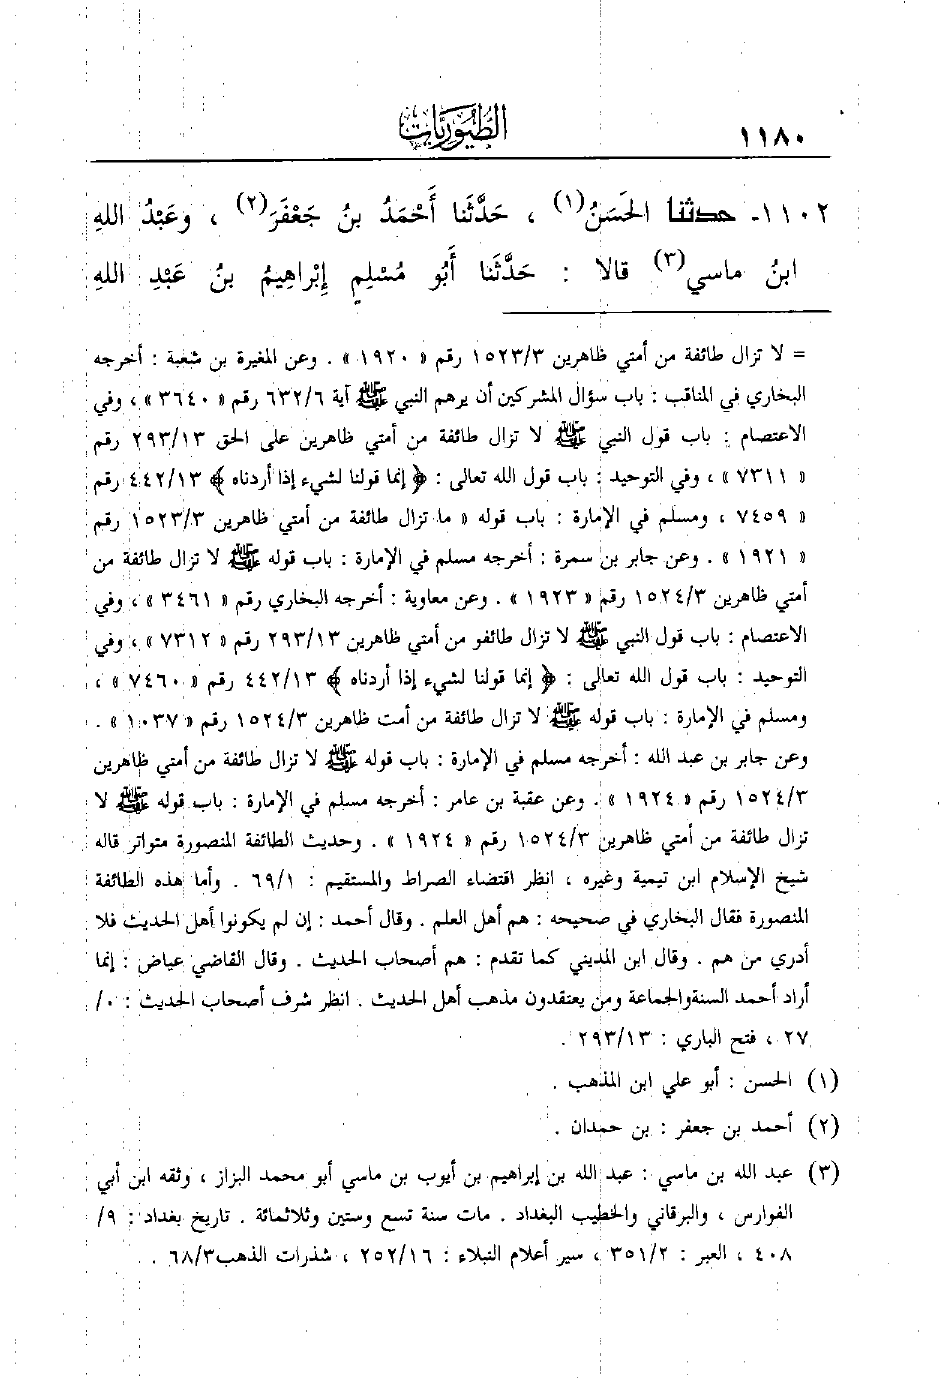 ١١٨٠
الطُّيُوريَّات
١١٠٢- حدثنا الحَسَنُ(١) ، حَدَّثَنا أَحْمَدُ بنُ جَعْفَرَ(٢) ، وعَبْدُ اللهِ
ابنُ ماسي(٣) قالا : حَدَّثَنا أَبُو مُسْلِمٍ إِبْراهِيمُ بنُ عَبْدِ اللهِ
= لا تزال طائفة من أمتي ظاهرين ١٥٢٣/٣ رقم « ١٩٢٠ » . وعن المغيرة بن شعبة : أخرجه
البخاري في المناقب : باب سؤال المشركين أن يرهم النبي ﷺ آية ٦٣٢/٦ رقم « ٣٦٤٠ » ، وفي
الاعتصام : باب قول النبي ﷺ لا تزال طائفة من أمتي ظاهرين على الحق ٢٩٣/١٣ رقم
« ٧٣١١ » ، وفي التوحيد : باب قول الله تعالى : ﴿ إنما قولنا لشيء إذا أردناه ﴾ ٤٤٢/١٣ رقم
« ٧٤٥٩ ، ومسلم في الإمارة : باب قوله « ما تزال طائفة من أمتي ظاهرين ١٥٢٣/٣ رقم
« ١٩٢١ » . وعن جابر بن سمرة : أخرجه مسلم في الإمارة : باب قوله ﷺ لا تزال طائفة من
أمتي ظاهرين ١٥٢٤/٣ رقم « ١٩٢٣ » . وعن معاوية : أخرجه البخاري رقم « ٣٤٦١ » ، وفي
الاعتصام : باب قول النبي ﷺ لا تزال طائفو من أمتي ظاهرين ٢٩٣/١٣ رقم « ٧٣١٢ » ، وفي
التوحيد : باب قول الله تعالى : ﴿ إنما قولنا لشيء إذا أردناه ﴾ ٤٤٢/١٣ رقم « ٧٤٦٠ » ،
ومسلم في الإمارة : باب قوله ﷺ لا تزال طائفة من أمت ظاهرين ١٥٢٤/٣ رقم « ١٠٣٧ » .
وعن جابر بن عبد الله : أخرجه مسلم في الإمارة : باب قوله ﷺ لا تزال طائفة من أمتي ظاهرين
١٥٢٤/٣ رقم « ١٩٢٤ » . وعن عقبة بن عامر : أخرجه مسلم في الإمارة : باب قوله ﷺ لا
تزال طائفة من أمتي ظاهرين ١٥٢٤/٣ رقم « ١٩٢٤ » . وحديث الطائفة المنصورة متواتر قاله
شيخ الإسلام ابن تيمية وغيره ، انظر اقتضاء الصراط والمستقيم : ٦٩/١ . وأما هذه الطائفة
المنصورة فقال البخاري في صحيحه : هم أهل العلم . وقال أحمد : إن لم يكونوا أهل الحديث فلا
أدري من هم . وقال ابن المديني كما تقدم : هم أصحاب الحديث . وقال القاضي عياض : إنما
أراد أحمد السنةوالجماعة ومن يعتقدون مذهب أهل الحديث . انظر شرف أصحاب الحديث : ٠/
٢٧ ، فتح الباري : ٢٩٣/١٣ .
(١) الحسن : أبو علي ابن المذهب .
(٢) أحمد بن جعفر : بن حمدان .
(٣) عبد الله بن ماسي : عبد الله بن إبراهيم بن أيوب بن ماسي أبو محمد البزاز ، وثقه ابن أبي
الفوارس ، والبرقاني والخطيب البغداد . مات سنة تسع وستين وثلاثمائة . تاريخ بغداد : ٩/
٤٠٨ ، العبر : ٣٥١/٢ ، سير أعلام النبلاء : ٢٥٢/١٦ ، شذرات الذهب٦٨/٣ .